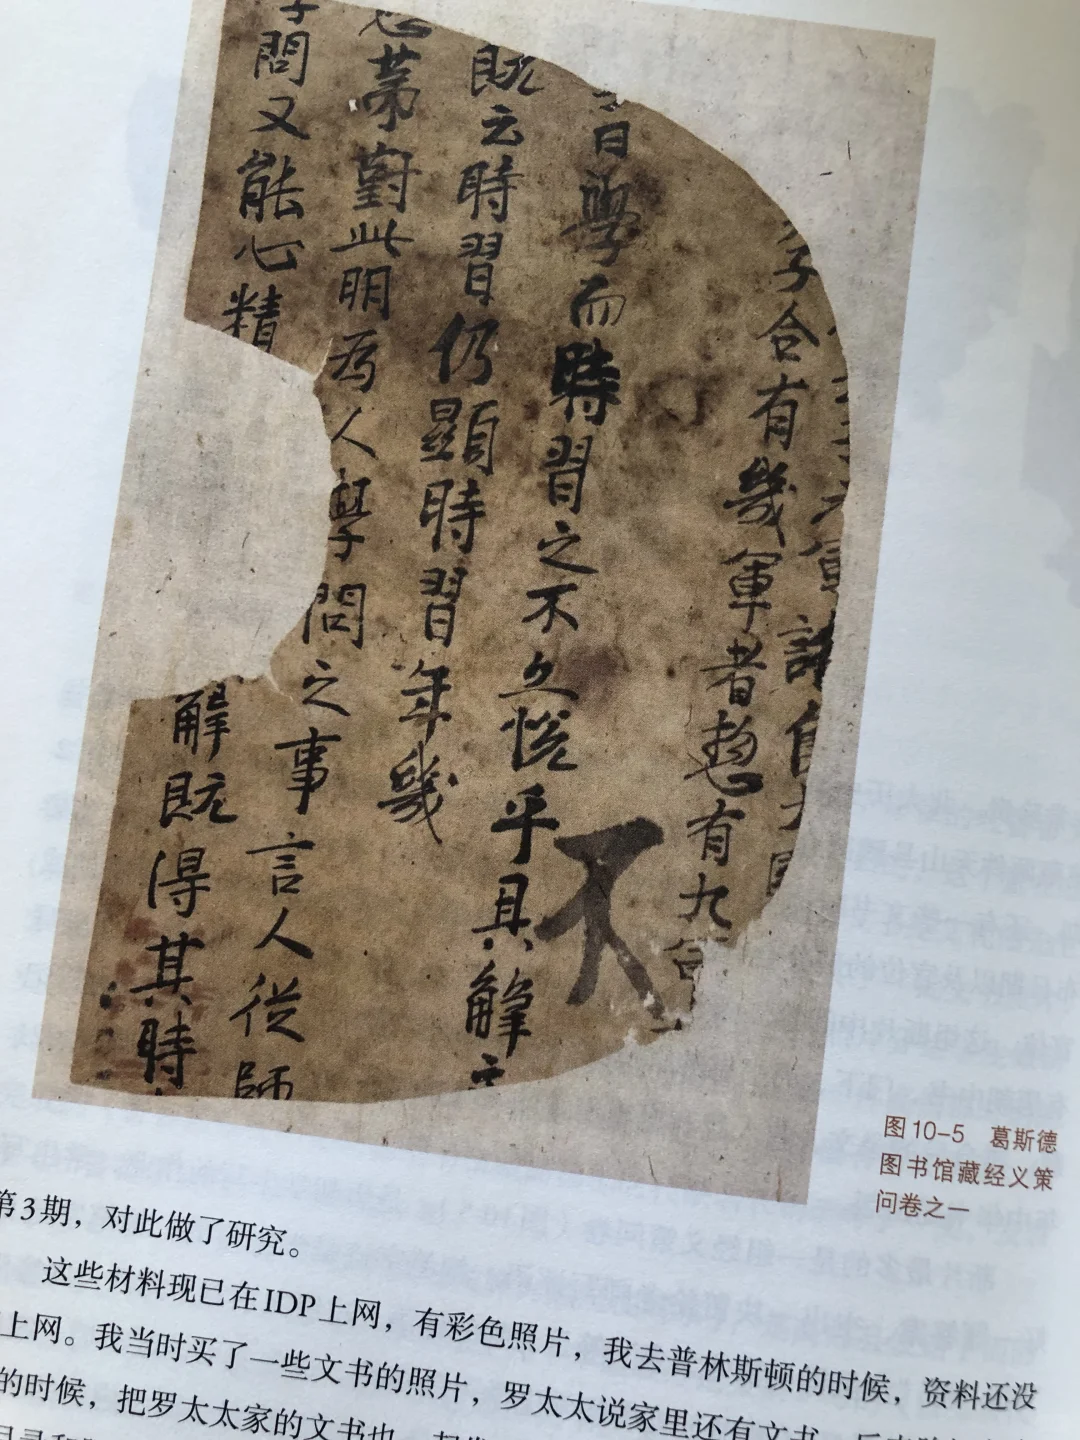 子合有幾軍者惣有九軍
曰學而時習之不久悅乎具解
不
既云時習仍顯時習年幾
第對此明爲人學問之事言人從師
問又能心精
解既得其時
图10-5 葛斯德
图书馆藏经义策
问卷之一
第3期，对此做了研究。
这些材料现已在IDP上网，有彩色照片，我去普林斯顿的时候，资料还没
上网。我当时买了一些文书的照片，罗太太说家里还有文书
的时候，把罗太太家的文书也